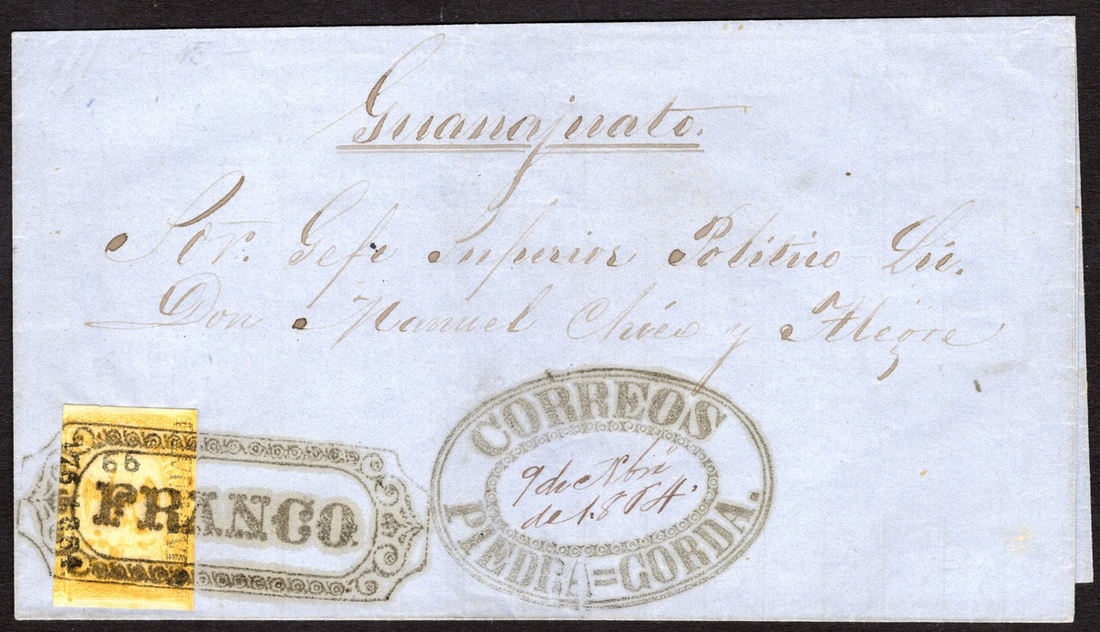 Guanajuato.
Sor. Gefe Superior Politico Lic.
Don Manuel Chico y Alegre
66
FRANCO
CORREOS
9 de Nbri
de 1864.
PIEDRA=GORDA.